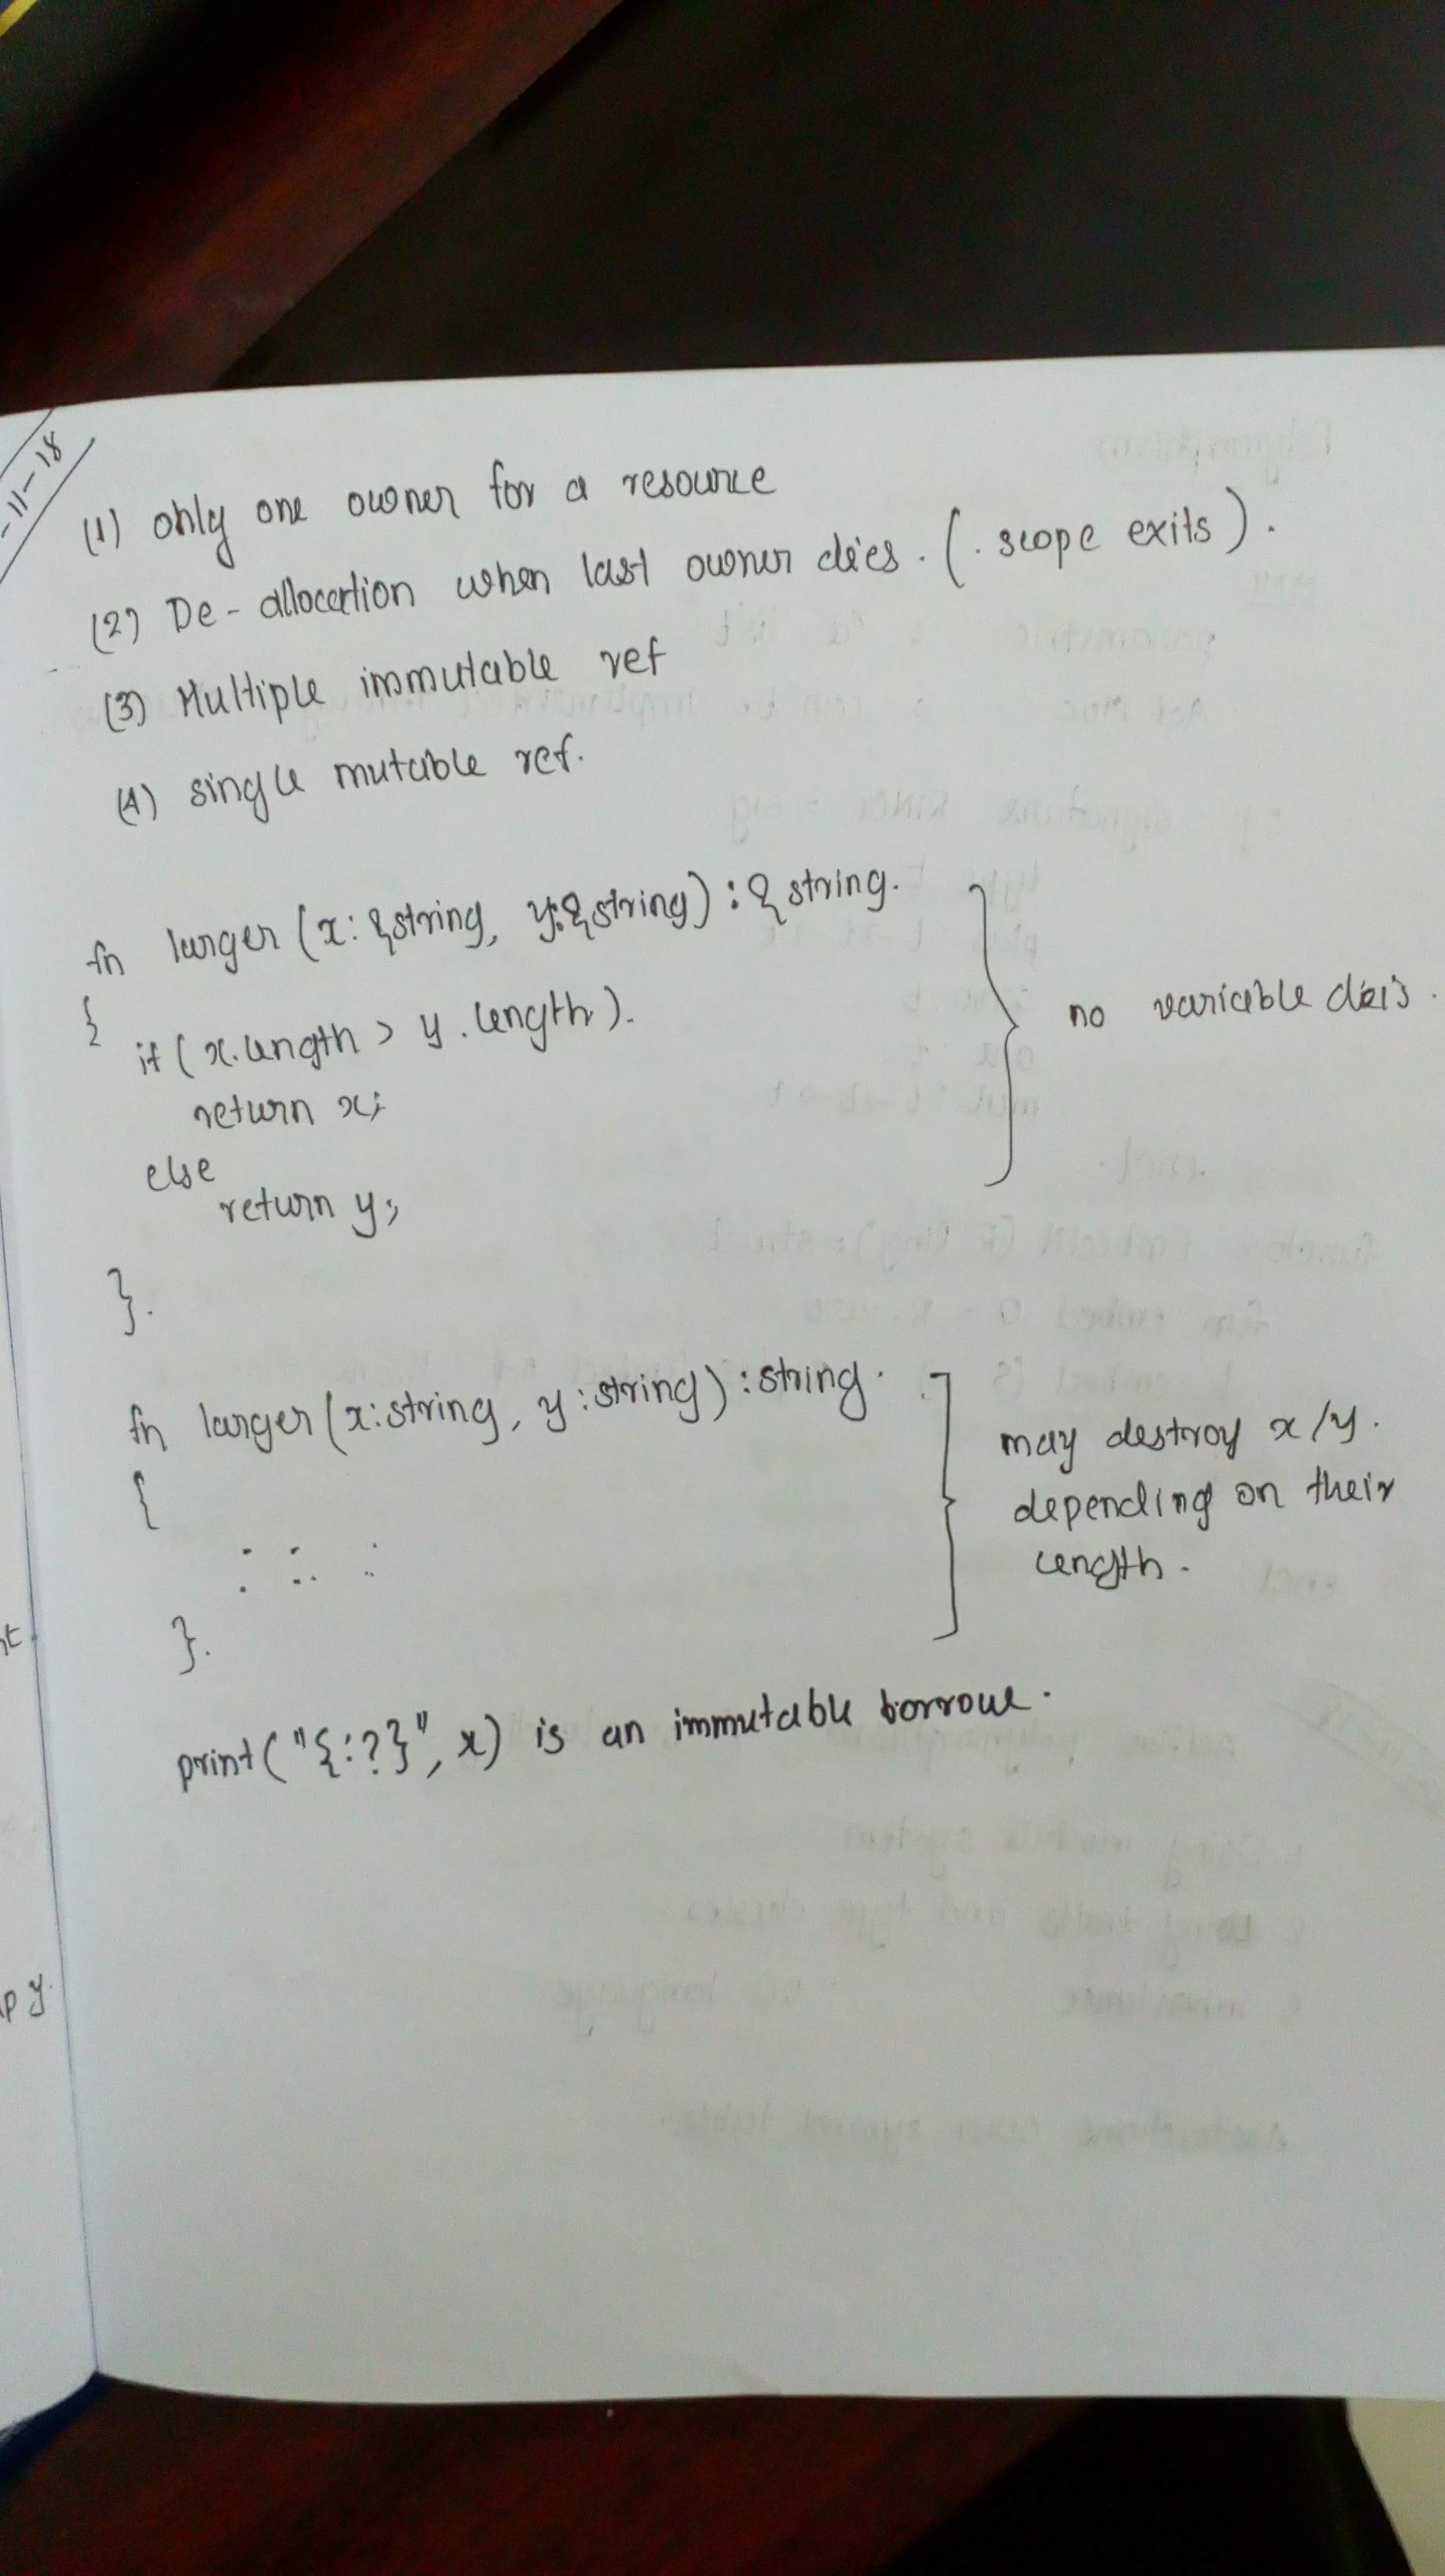 -11-18
(1) only one owner for a resource
(2) De-allocation when last owner dies. (. scope exits).
(3) Multiple immutable ref
(4) single mutable ref.
fn larger (x: &string, y:&string) : & string.
{
if (x.length > y.length).
return x;
else
return y;
}.
no variable deis.
fn larger (x:string, y:string) : string.
{
}.
may destroy x/y.
depending on their
length.
print("{:?}", x) is an immutable borrow.
py.